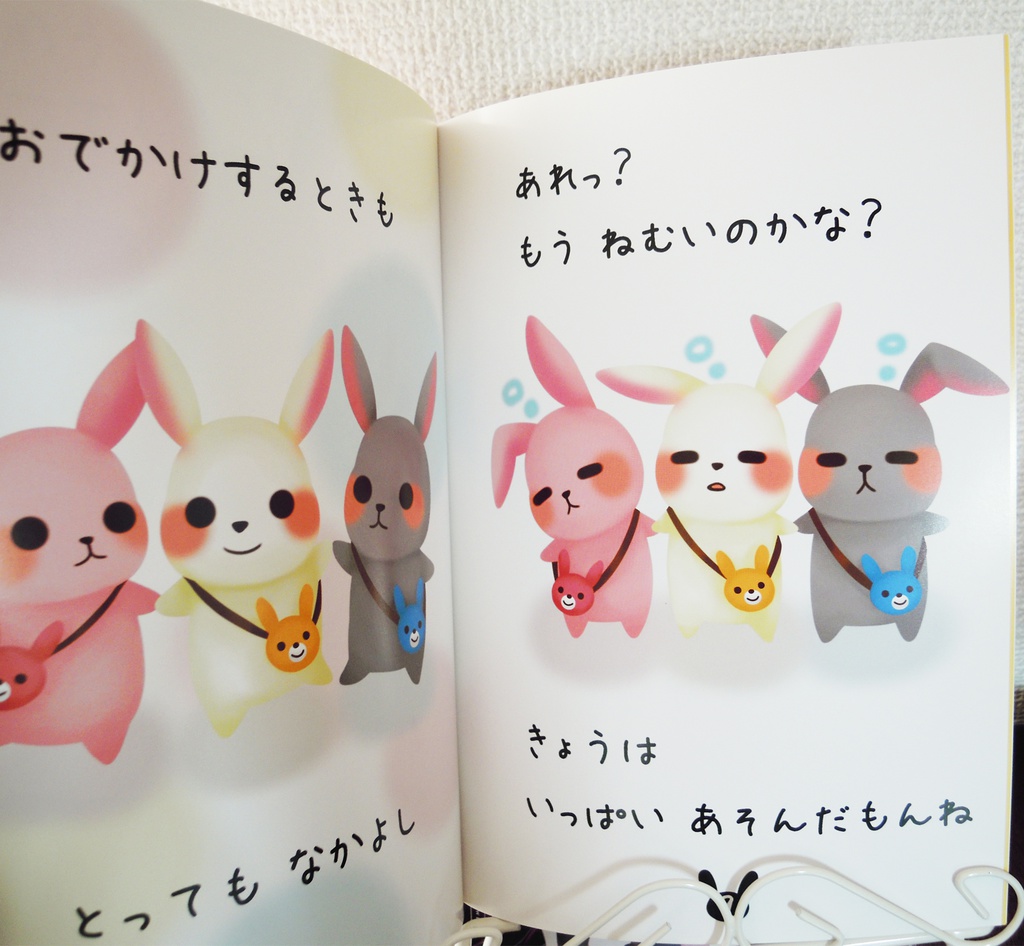 おでかけするときも
とっても なかよし
あれっ？
もう ねむいのかな？
きょうは
いっぱい あそんだもんね